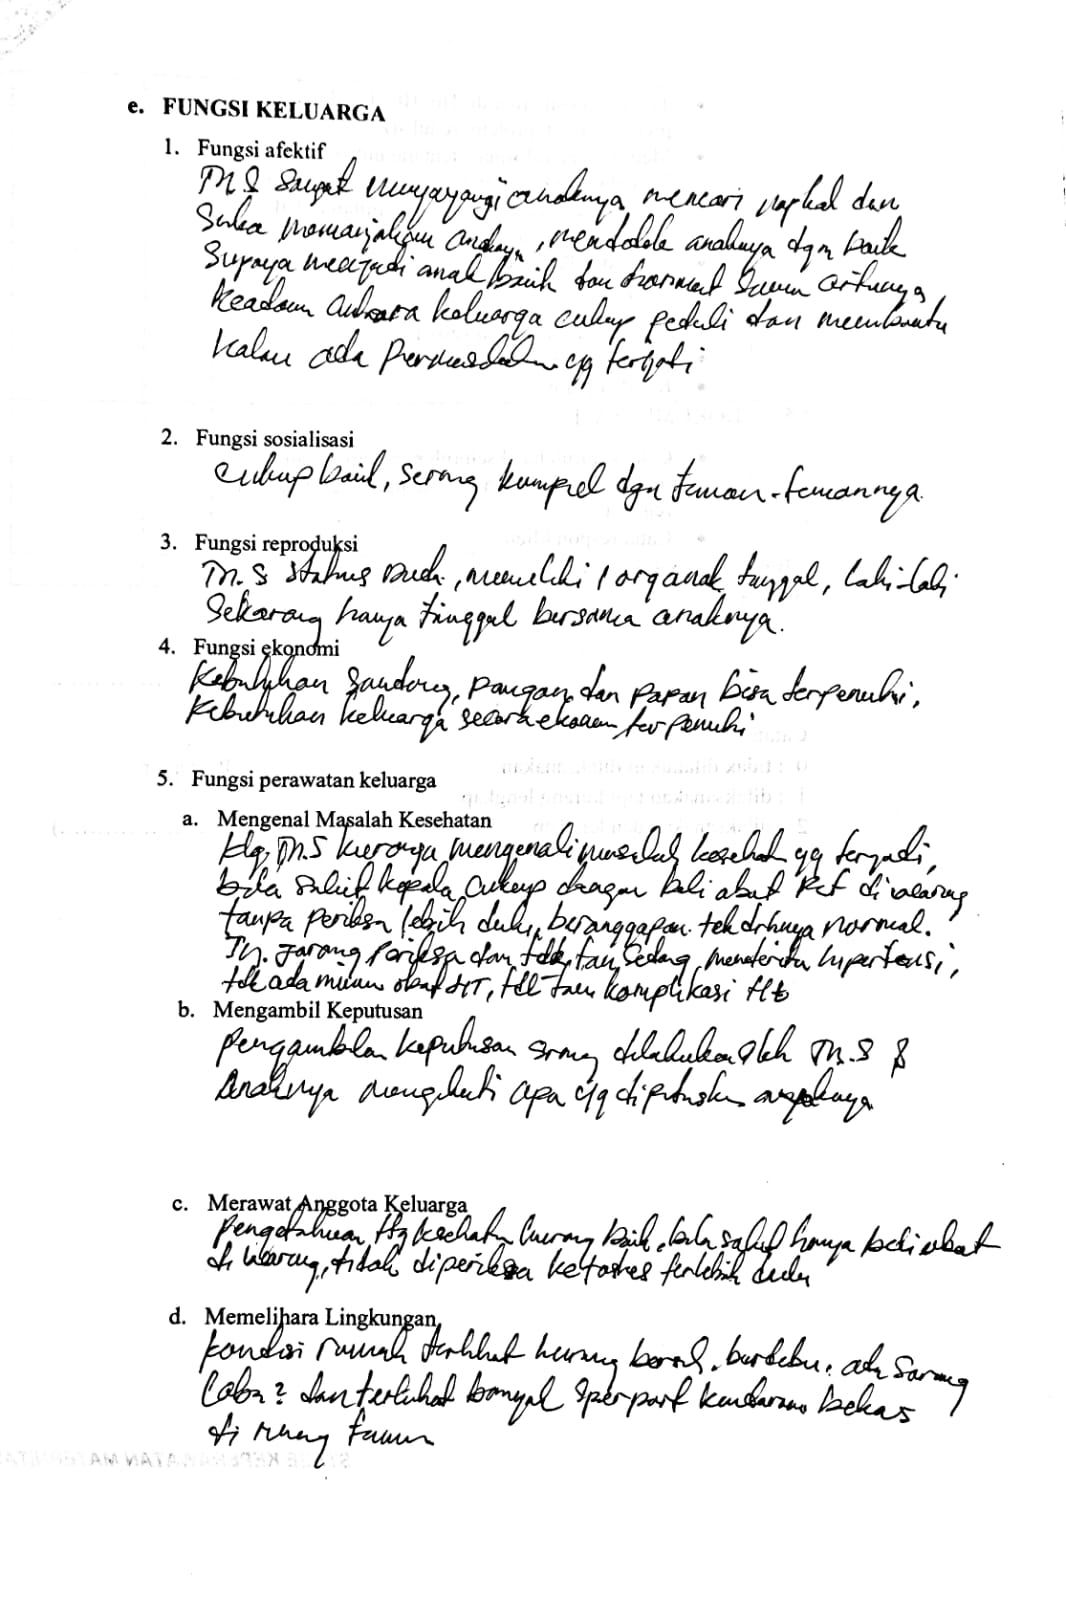 e. FUNGSI KELUARGA
1. Fungsi afektif
Tn S sangat menyayangi anaknya, mencari nafkah dan
Suka memanjakan anaknya, mendidik anaknya dgn baik
Supaya menjadi anak baik dan hormat sama ortunya,
Keadaan antara keluarga cukup peduli dan membantu
kalau ada permasalahan yg terjadi
2. Fungsi sosialisasi
Cukup baik, sering kumpul dgn teman-temannya.
3. Fungsi reproduksi
Tn. S status duda, memiliki 1 org anak tunggal, laki-laki
Sekarang hanya tinggal bersama anaknya.
4. Fungsi ekonomi
Kebutuhan Sandang, pangan, dan papan bisa terpenuhi,
Kebutuhan keluarga secara ekonomi terpenuhi
5. Fungsi perawatan keluarga
a. Mengenal Masalah Kesehatan
Klg, Tn. S kurang mengenali masalah kesehatan yg terjadi,
bila sakit kepala cukup dengan beli obat di warung
tanpa periksa lebih dulu, beranggapan tek drhnya normal.
Tn. Jarang periksa dan tdk tau sedang menderita hipertensi,
tdk ada minum obat HT, tdk tau komplikasi
b. Mengambil Keputusan
Pengambilan keputusan sering dilakukan oleh Tn. S &
Anaknya mengikuti apa yg diputuskan
c. Merawat Anggota Keluarga
Pengetahuan ttg kesehatan kurang baik, bila sakit hanya beli obat
di warung, tidak diperiksa kefaskes terlebih dulu
d. Memelihara Lingkungan
Kondisi rumah terlihat kurang bersih, berdebu, ada sarang
laba2 dan terlihat banyak sperpart kendaraan bekas
di ruang tamu